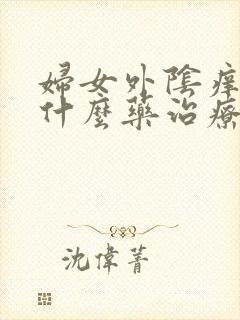 婦女外陰痒
什麼藥治療
沈偉菁